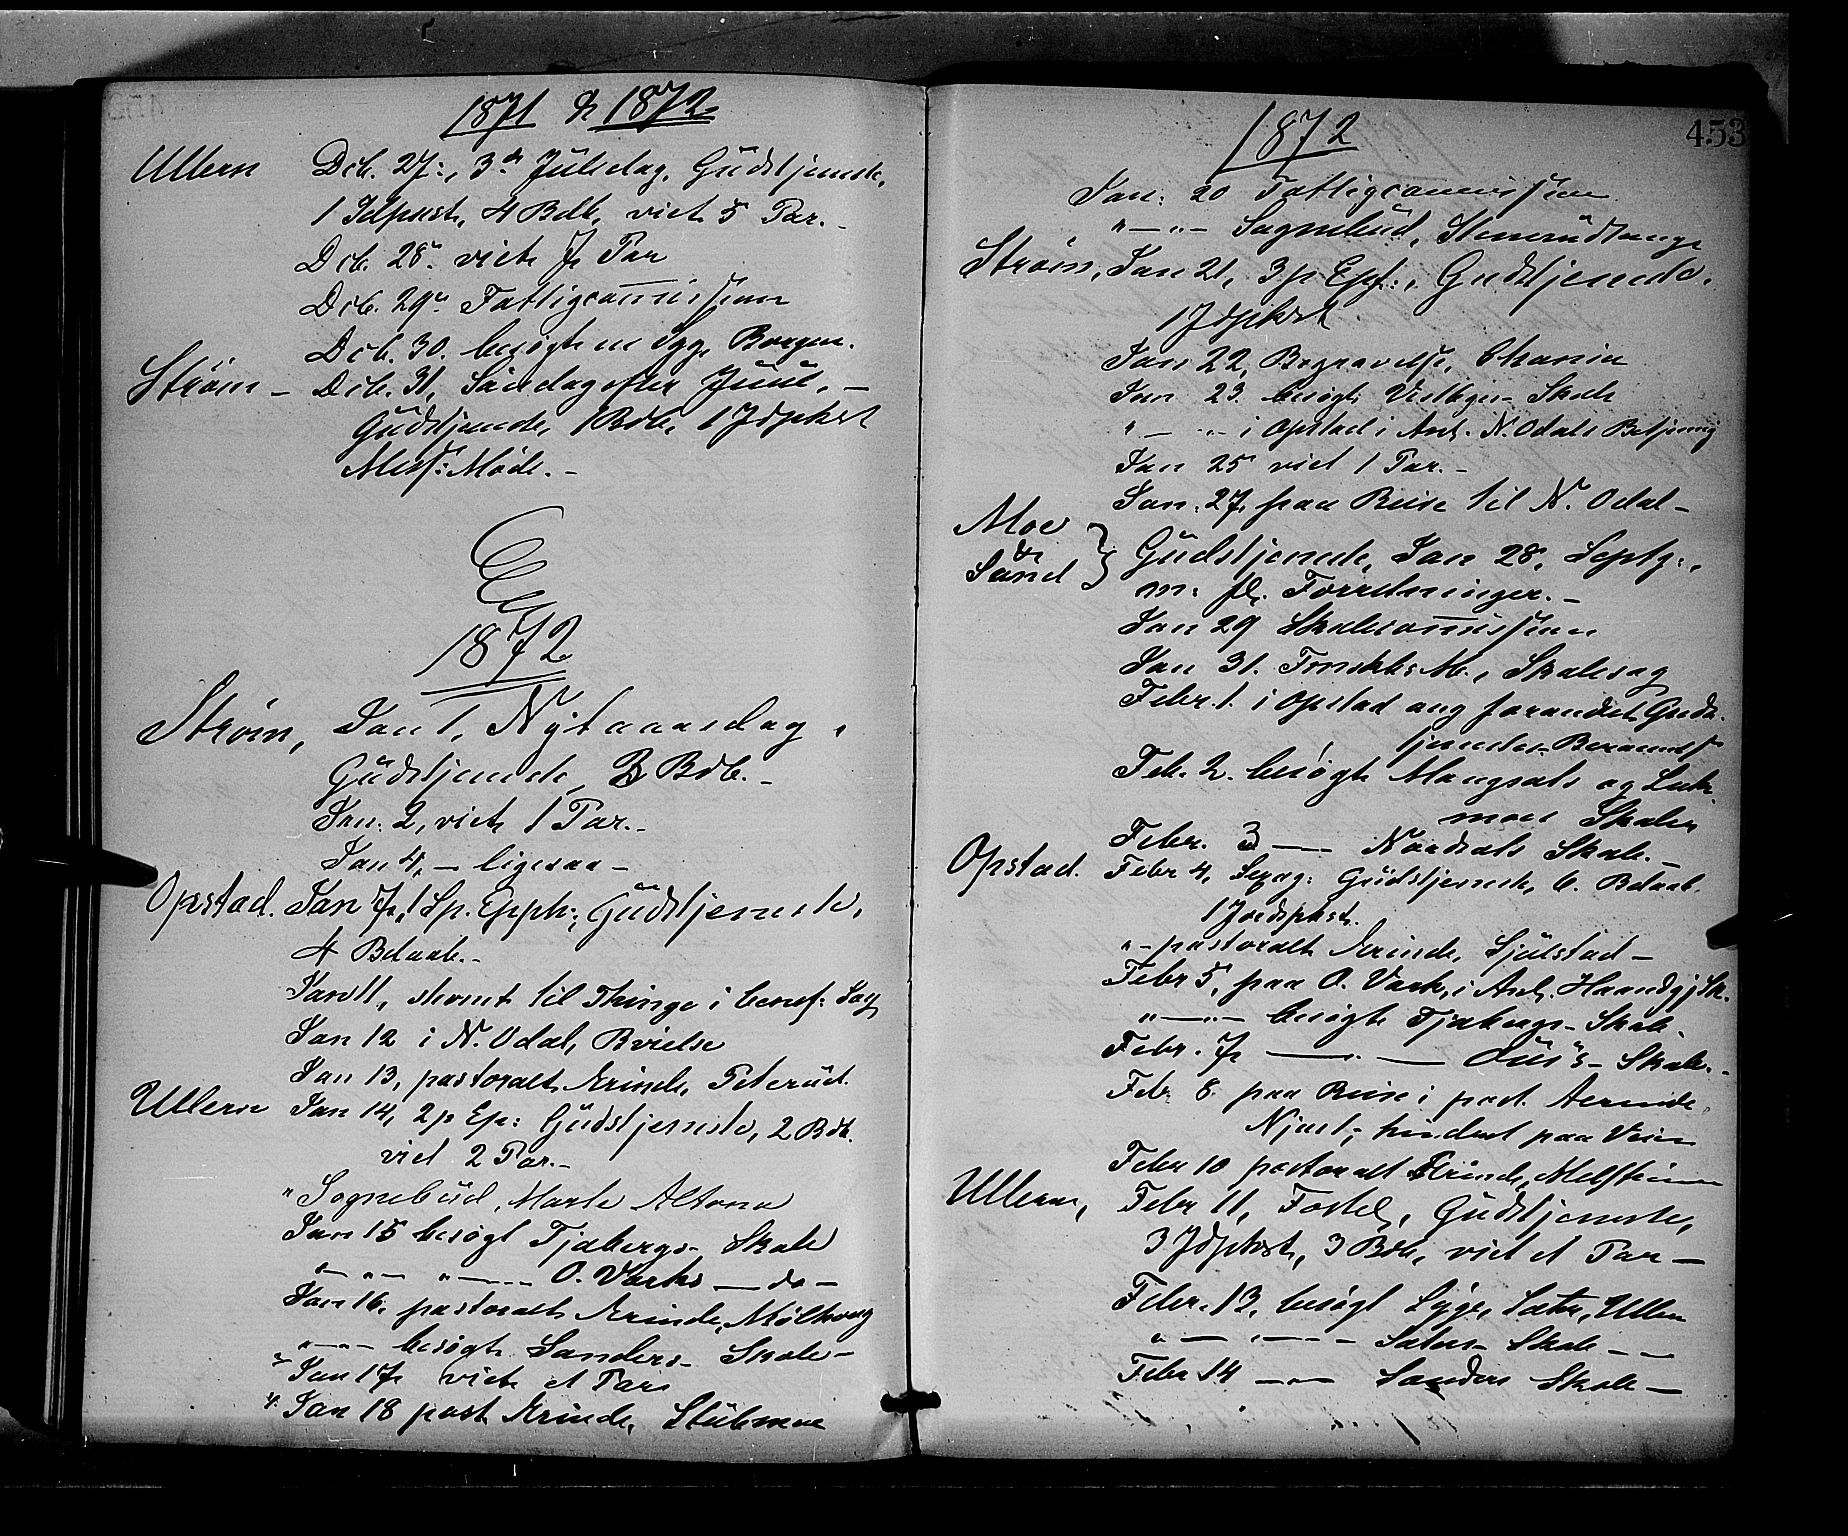 1871 & 1872
Ullern Dcb. 27:, 3d Juledag, Gudstjeneste,
1 Jdpkst, 4 Bdb, viet 5 Par.
Dcb. 28. viet 7 Par
Dcb. 29 Fattigcommission
Dcb. 30. besøgt en Syg, Borgen.
Strøm – Dcb. 31, Søndag efter Juul, –
Gudstjeneste, 1 Bdb, 1 Jdpkst
Miss: Møde. –
1872
Strøm, Jan 1, Nytaarsdag,
Gudstjeneste 3 Bdb. –
Jan. 2, viet 1 Par. –
Jan 4, – ligesaa –
Opstad. Jan 7, 1 S p. Epph:, Gudstjeneste,
4 Bdaab. –
Jan 11, stevnt til Thinge i benef: Sag
Jan 12 i N. Odal, Bvielse
Jan 13, pastoralt Ærinde, Peterud.
Ullern Jan 14, 2 p Ep: Gudstjeneste, 2 Bdb.
viet 2 Par. –
" Sognebud, Marte Altona
Jan 15 besøgt Tjabergs- Skole
" – " – " – O. Værks – do –
Jan 16, pastoralt Ærinde,
" – " – besøgt Sanders- Skole –
Jan 17 viet et Par
Jan 18 past Ærinde, Stubmoe
1872
453
Jan: 20 Fattigcommission
" – " – Sognebud,
Strøm, Jan 21, 3 p Eph:, Gudstjeneste,
1 Jdpkst
Jan 22, Begravelse,
Jan 23 besøgt Skole
" – " – i Opstad i Anl. N. Odals Betjening
Jan 25 viet 1 Par. –
Jan. 27, paa Reise til N. Odal –
Moe
&
Sand } Gudstjeneste, Jan 28, Septg:,
m: fl. Forretninger. –
Jan 29 Skolecommission
Jan 31. Formskb: M., Skolesag
Febr. 1. i Opstad ang forandret Guds-
tjenestes-Berammelse
Feb. 2. besøgt Mangsets og
moen Skoler
Febr. 3 – Nordsets Skole. –
Opstad. Febr 4, Sexag: Gudstjeneste, 6. Bdaab.
1 Jordspkst.
" – pastoralt Ærinde, Sjulstad –
Febr 5, paa O. Værk, i Anl. Haandgj Sk.
" – " – besøgt Tjabergs- Skole –
Febr. 7 – " – Skole. –
Febr 8. paa Reise i past. Aerinde
hindret paa Veien
Febr 10 pastoralt Ærinde,
Ullern, Febr 11, Fastel, Gudstjeneste,
3 Jdpkst, 3 Bdb, viet et Par –
Febr. 13, besøgt Syge, Sæter, Ullern
" – " – Sæters- Skole – –
Febr 14 – " – Sanders Skole –